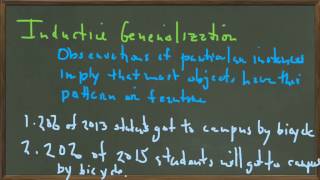 Inductive Generalization
Observations of particular instances
imply that most objects have this
pattern or feature
1. 20% of 2013 students got to campus by bicycle
2. 20% of 2015 students will get to campus
by bicycle.